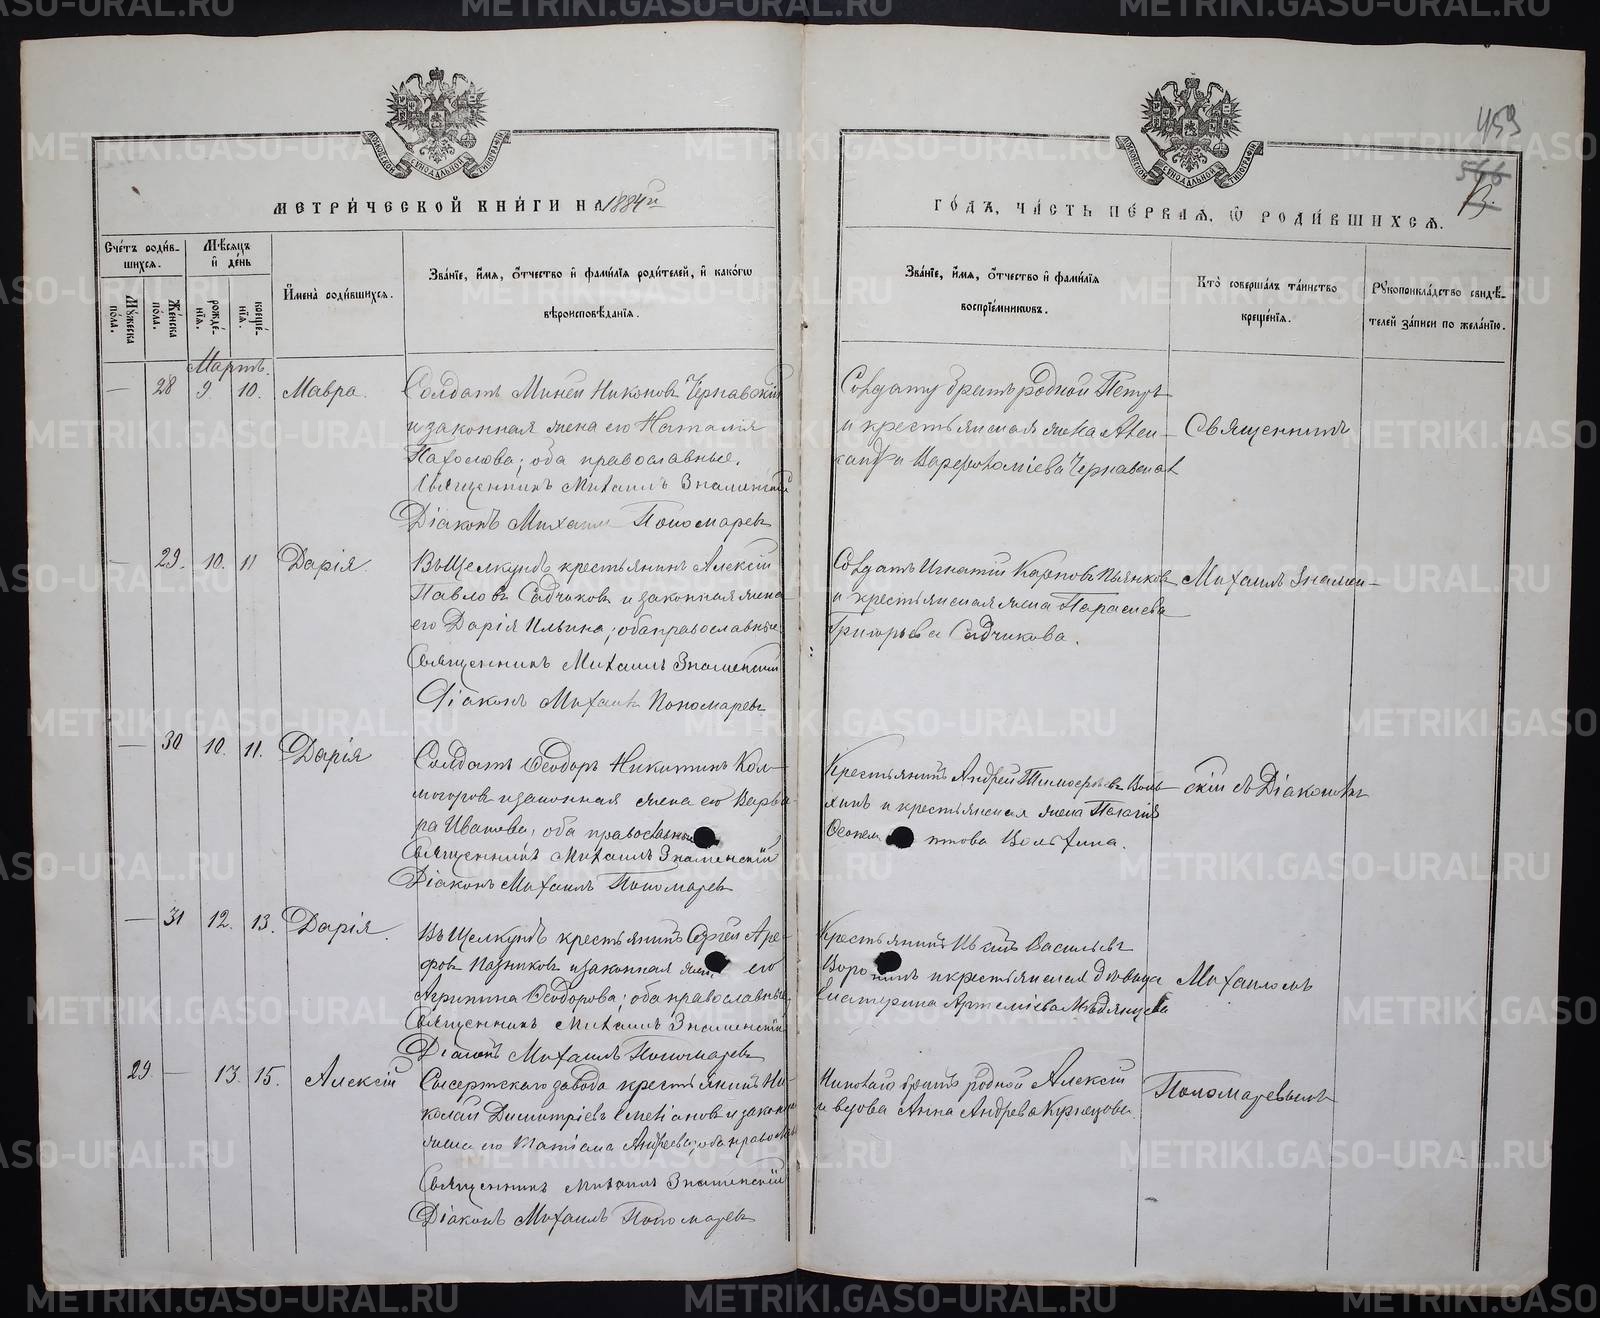 459
566
МЕТРИЧЕСКОЙ КНИГИ НА 1884й
ГОДЪ, ЧАСТЬ ПЕРВАЯ, Ѿ РОДИВШИХСЯ.
Счетъ родив-
шихся.
Мѣсяцъ
и день
Имена родившихся.
Званіе, имя, отчество и фамилія родителей, и какогѡ
вѣроисповѣданія.
Мужеска
пола.
Женска
пола.
рожде-
нія.
креще-
нія.
Званіе, имя, отчество и фамилія
воспріемниковъ.
Кто совершалъ таинство
крещенія.
Рукоприкладство свидѣ-
телей записи по желанію.
Мартъ.
— 28 9. 10. Мавра. Солдатъ Миней Никоновъ Чернавскій
и законная жена его Наталія
оба православные.
Священникъ Михаилъ Знаменскій
Діаконъ Михаилъ Пономаревъ
Солдату братъ родной Петръ
и крестьянская жена Алек-
Варфоломіева Чернавская
Священникъ
— 29. 10. 11 Дарія. Въ Щелкунѣ крестьянинъ Алексій
Павловъ Садчиковъ и законная жена
его Дарія Ильина; оба православные.
Священникъ Михаилъ Знаменскій
Діаконъ Михаилъ Пономаревъ
Солдатъ Игнатій Карповъ Пьянковъ
и крестьянская жена Параскева
Григорьева Садчикова.
Михаилъ Знамен-
— 30 10. 11. Дарія Солдатъ Ѳеодоръ Никитинъ Кол-
могоровъ и законная жена его Варва-
ра Иванова; оба православные
Священникъ Михаилъ Знаменскій
Діаконъ Михаилъ Пономаревъ
Крестьянинъ Андрей Тимоѳеевъ Воль-
хинъ и крестьянская жена Пелагія
Вольхина.
скій съ Діакономъ
— 31 12. 13. Дарія. Въ Щелкунѣ крестьянинъ Сергѣй Аре-
фовъ Пазниковъ и законная жена его
Агрипина Ѳеодорова; оба православные
Священникъ Михаилъ Знаменскій
Діаконъ Михаилъ Пономаревъ
Крестьянинъ Иванъ Васильевъ
Воронинъ и крестьянская дѣвица
Екатерина Артеміева Мѣдянцева
Михаиломъ
29. — 13. 15. Алексій Сысертскаго завода крестьянинъ Ни-
колай Димитріевъ и законн
жена его Андреева; оба правосла
Священникъ Михаилъ Знаменскій
Діаконъ Михаилъ Пономаревъ
Николаю братъ родной Алексій
и вдова Анна Андреева Кузнецова.
Пономаревымъ